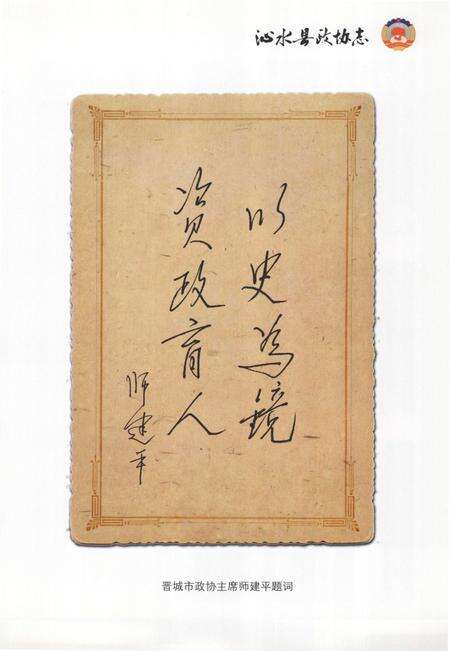 沁水县政协志
以史為鏡
资政育人
师建平
晋城市政协主席师建平题词